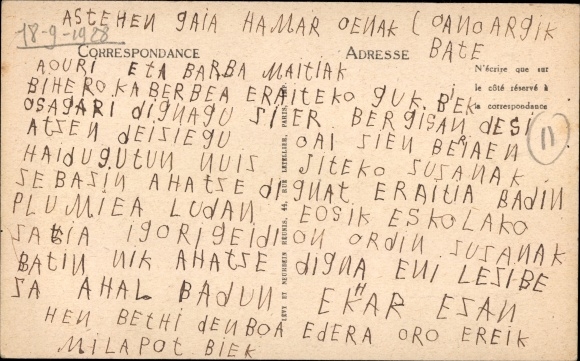 ASTEHEN GAIA HAMAR OENAK (OANO ARGIK
BATE
18-9-1928
CORRESPONDANCE
ADRESSE
N'écrire que sur
le côté réservé à
la correspondance
AOURI ETA BARBA MAITIAK
BIHERO KABERBEA ERAITEKO GUK. BEK
OSAGARI DIGNAGU SIER BERGISAN DESI
ATZEN DEISIEGU OAI SIEN BEJAEN
HAIDUGUTUN NUIS JITEKO SUSANAK
SEBASIN AHATSE DIGNAT ERAITIA BADIN
PLUMIEA LUDAN EOSIK ESKOLAKO
IGORI GEIDION ORDIN SUSANAK
BATIN NIK AHATSE DIGNA ENI LESIBE
SA AHAL BADUN EKHAR ESAN
HEN BETHI DENBOA EDERA ORO EREIK
MILAPOT BIEK
11
LÉVY ET NEURDEIN RÉUNIS, 44, RUE LETELLIER, PARIS